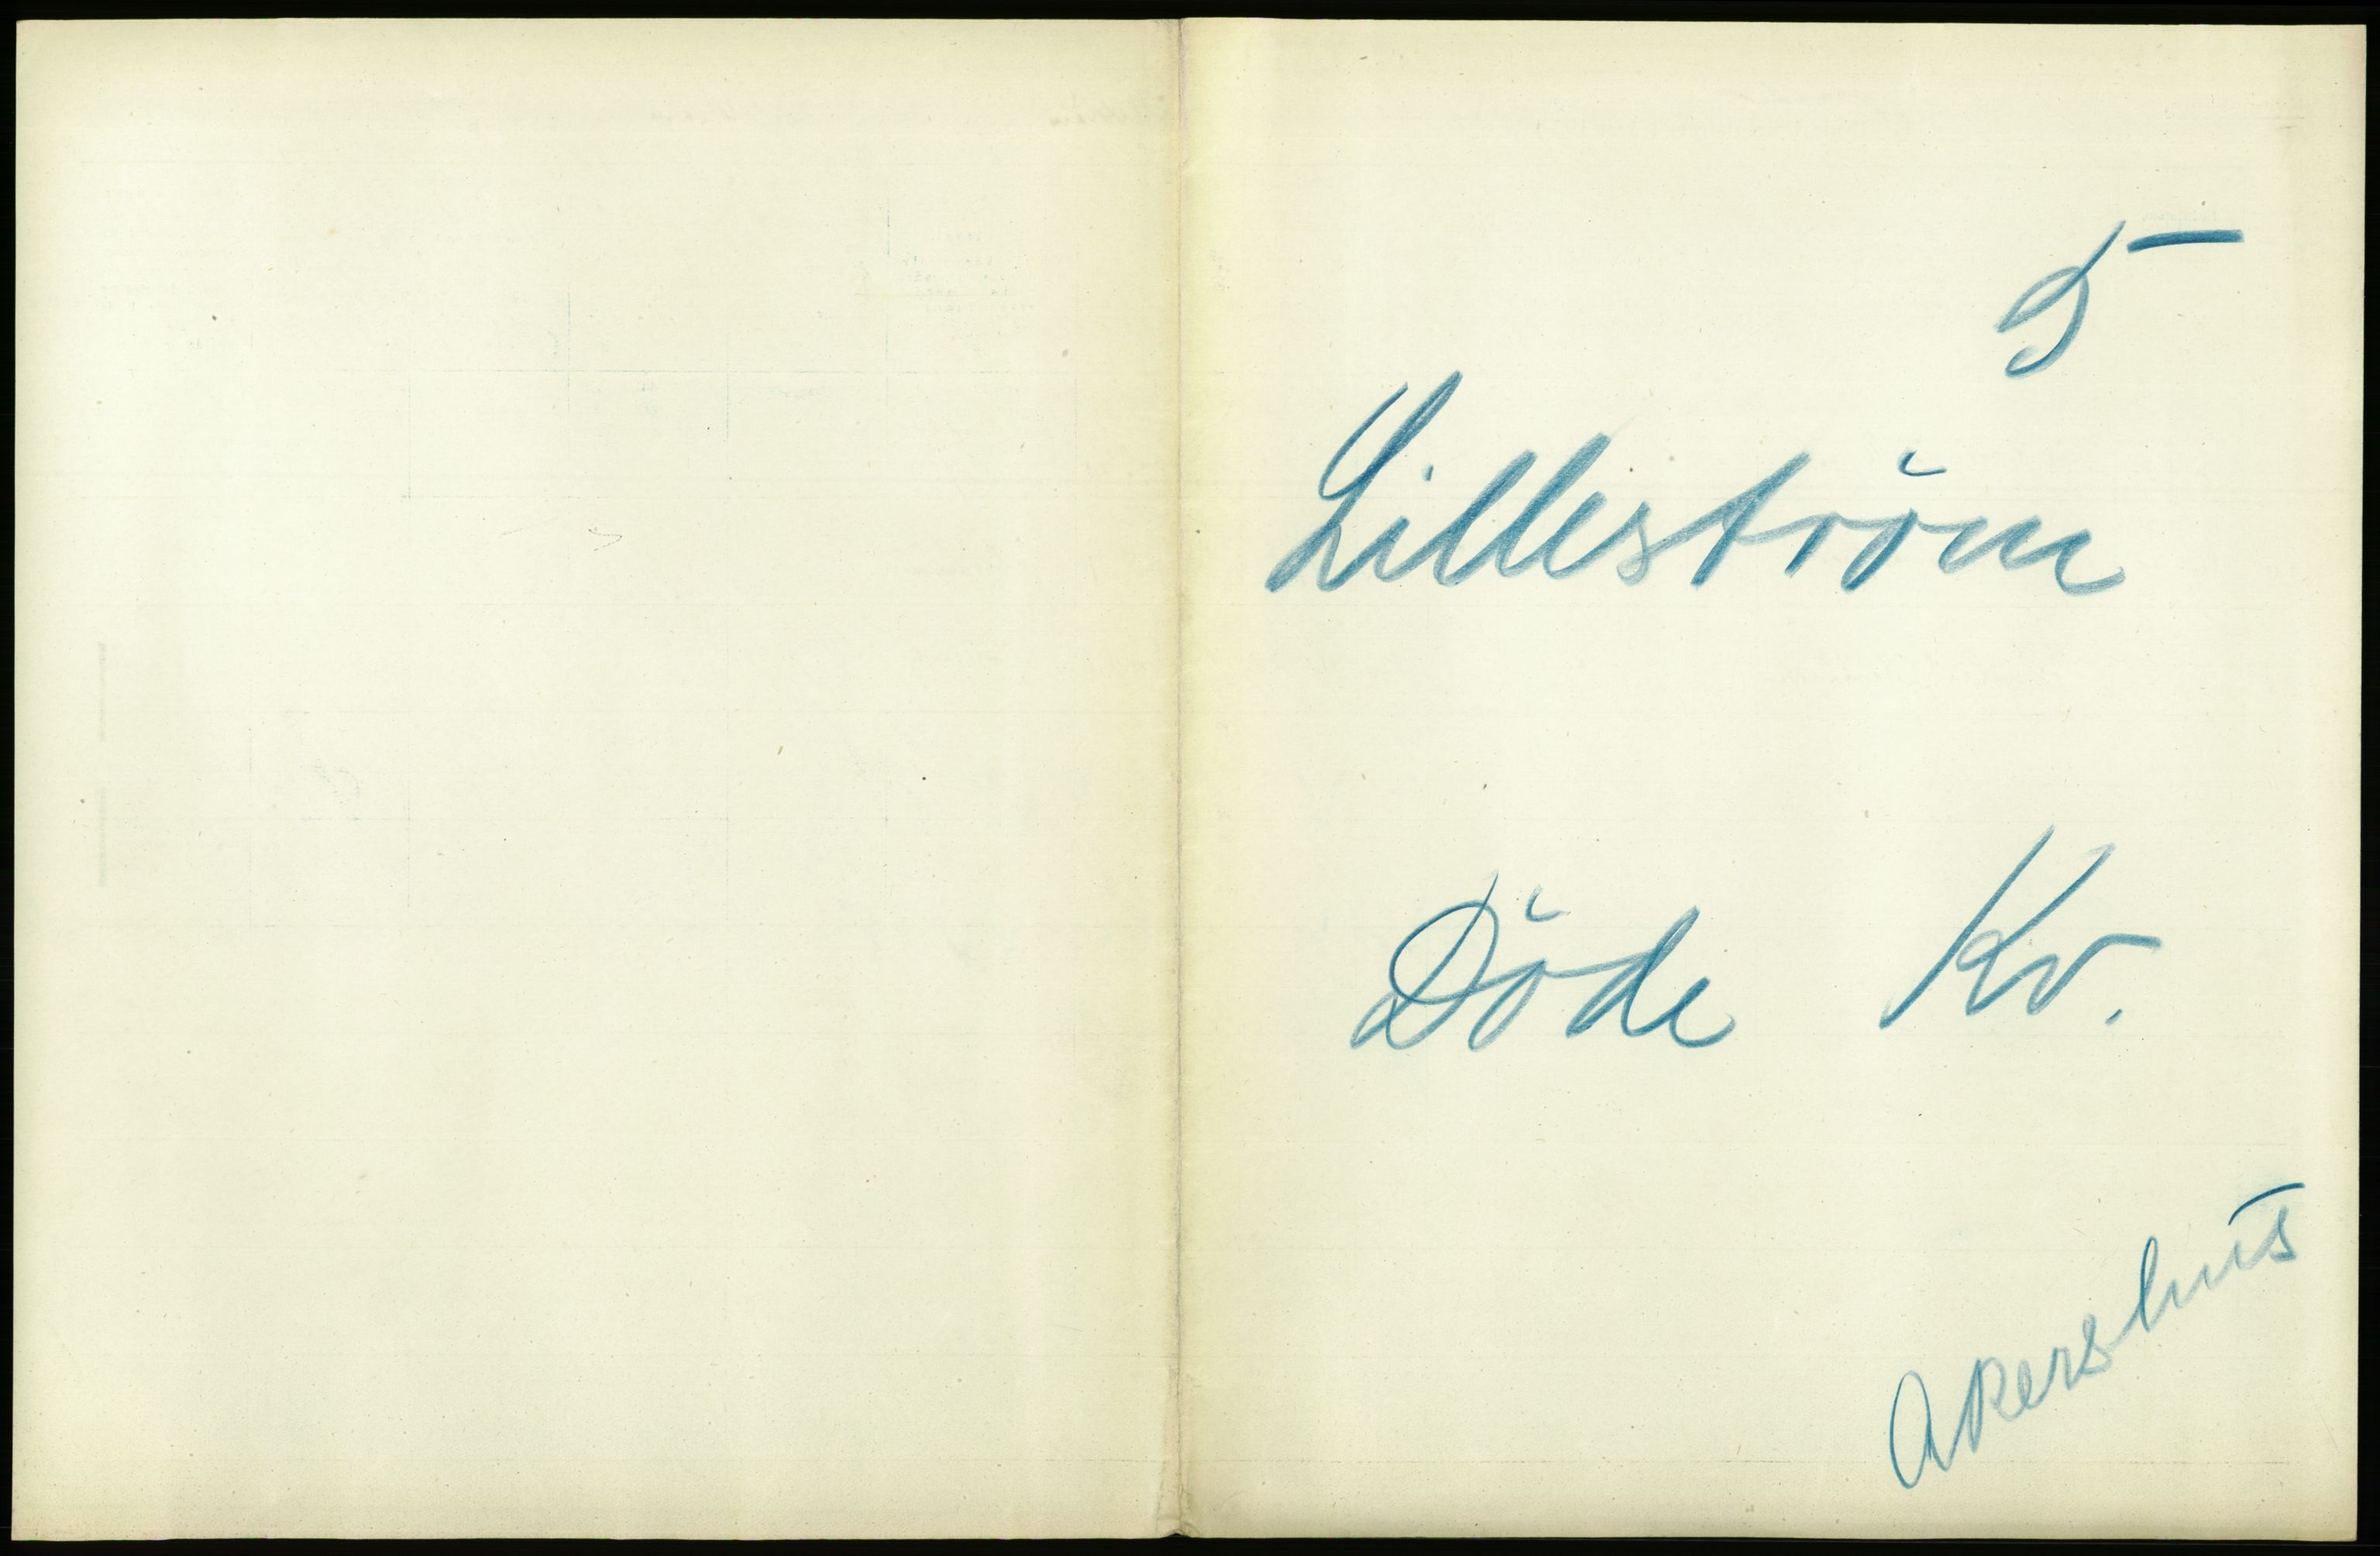 5
Lilleström
Döde Kv.
Akershus